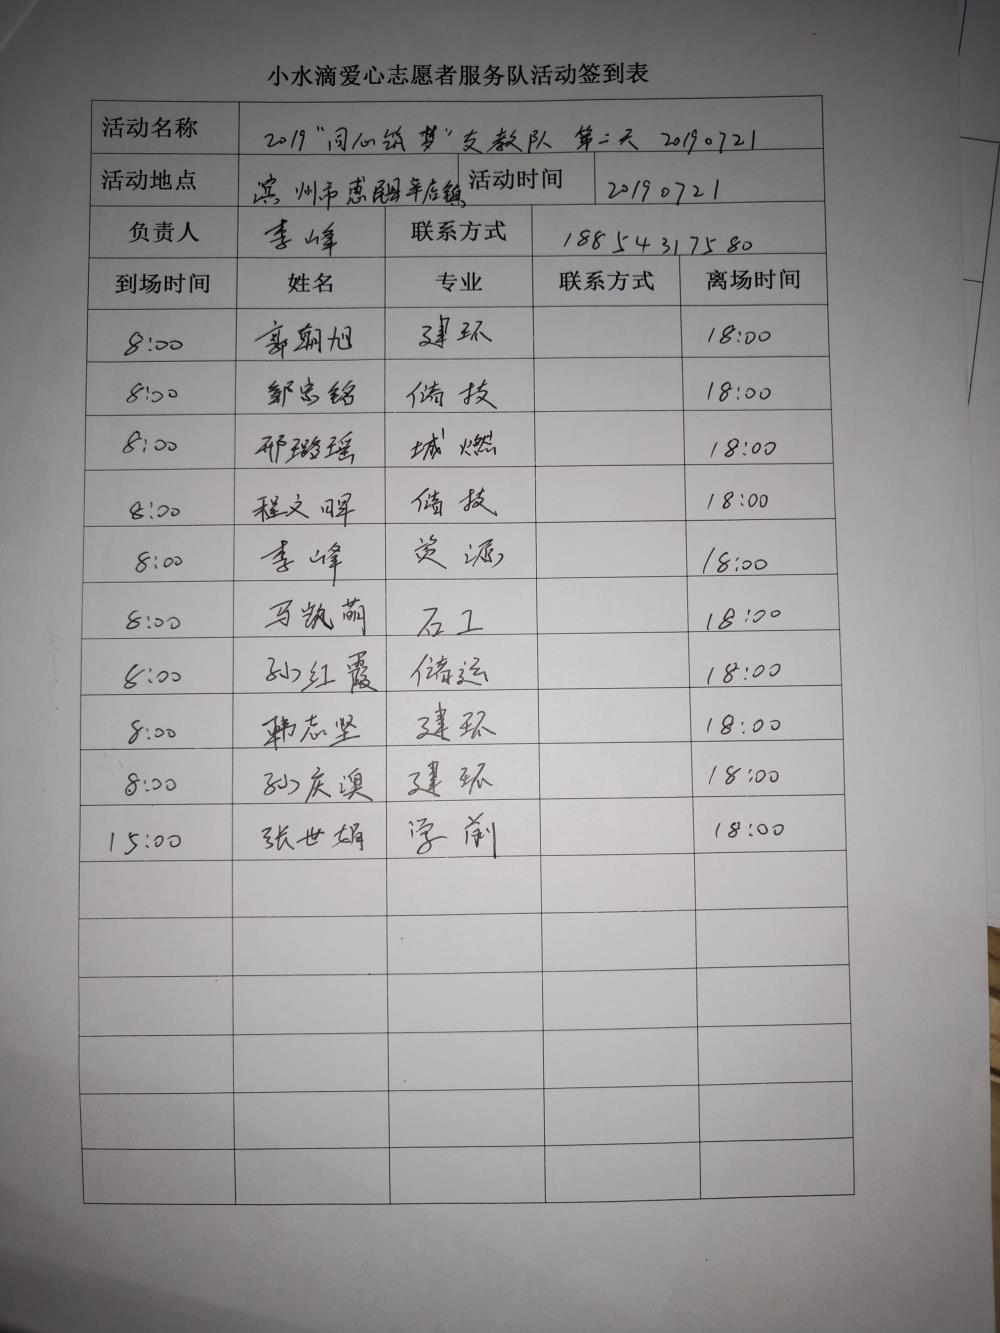 小水滴爱心志愿者服务队活动签到表
活动名称 2019“同心筑梦”支教队 第二天 20190721
活动地点 滨州市惠民县辛店镇 活动时间 20190721
负责人 李峰 联系方式 18854317580
到场时间 姓名 专业 联系方式 离场时间
8:00 郭朝旭 建环 18:00
8:00 邹忠铭 储技 18:00
8:00 邢璐瑶 城燃 18:00
8:00 程文晖 储技 18:00
8:00 李峰 资源 18:00
8:00 马凯萌 石工 18:00
8:00 孙红霞 储运 18:00
8:00 韩志坚 建环 18:00
8:00 孙庆澳 建环 18:00
15:00 张世娟 学前 18:00